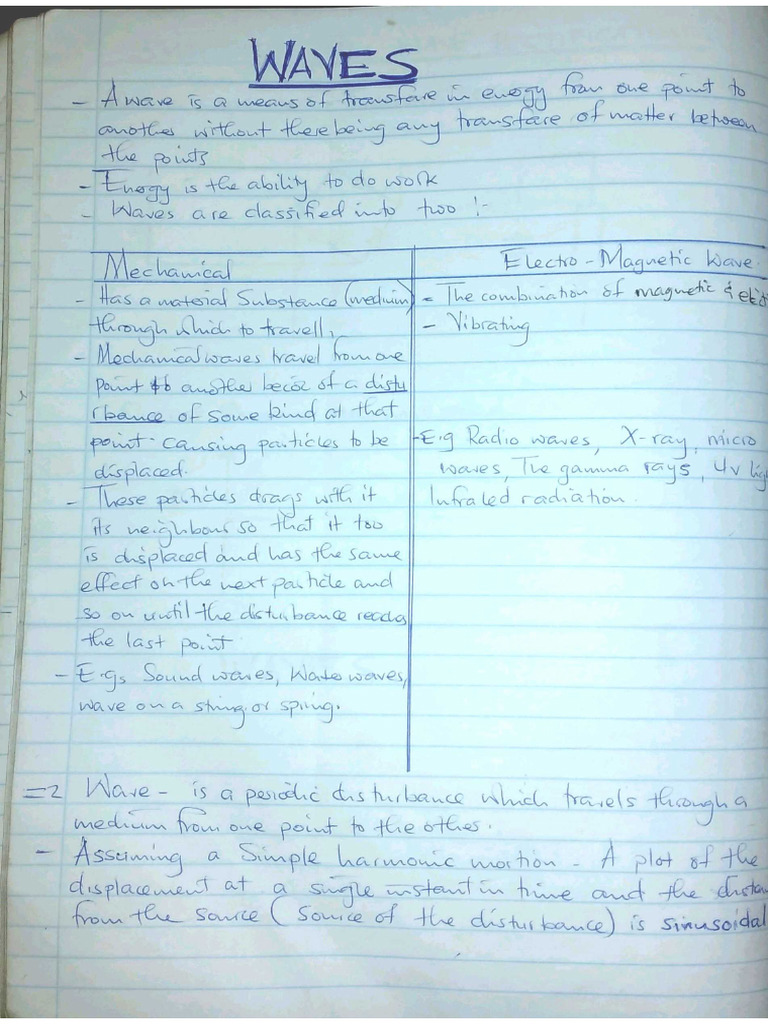 WAVES
- A wave is a means of transfare in energy from one point to
another without there being any transfare of matter between
the points
- Energy is the ability to do work
- Waves are classified into two :-
Mechanical
- Has a material Substance (medium)
through which to travell,
- Mechanical waves travel from one
point to another becoz of a distu
rbance of some kind at that
point. Causing particles to be
displaced.
- These particles drags with it
its neighbour so that it too
is displaced and has the same
effect on the next particle and
so on until the disturbance reaches
the last point.
- E.gs Sound waves, Water waves,
wave on a string or spring.
Electro - Magnetic Wave.
- The combination of magnetic &
- Vibrating
- E.g Radio waves, X-ray, micro
waves, The gamma rays, Uv
Infraled radiation.
=2 Wave - is a periodic disturbance which travels through a
medium from one point to the other.
- Assuming a Simple harmonic motion - A plot of the
displacement at a single instant in time and the
from the source (Source of the disturbance) is sinusoidal